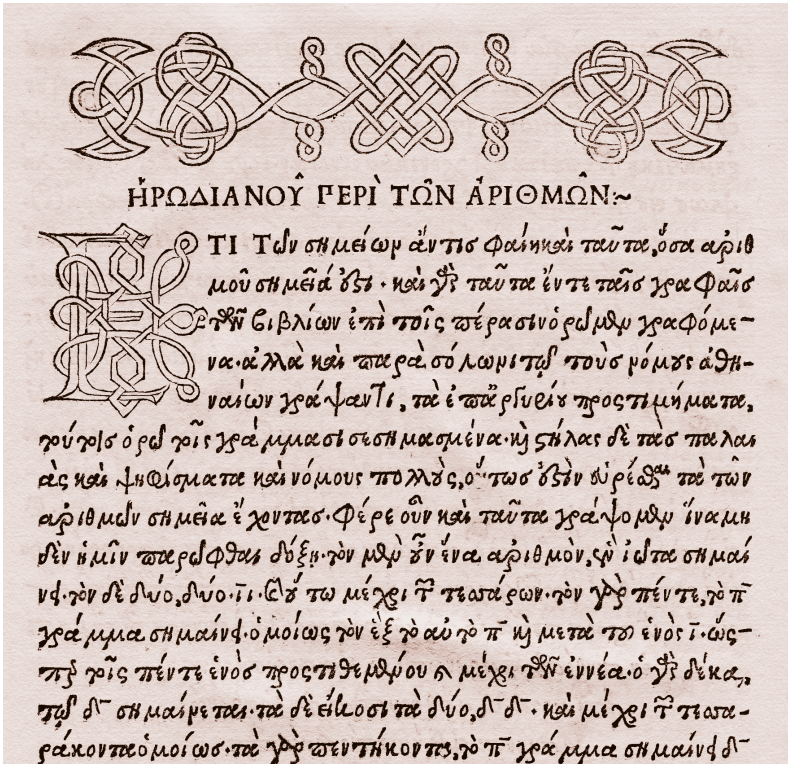 ἩΡΩΔΙΑΝΟΥ͂ ΠΕΡῚ ΤΩ͂Ν ἈΡΙΘΜΩ͂Ν:~
ΕΤΙ Τῶν σημείων ἄν τις φαίη καὶ ταῦτα, ὅσα ἀριθ
μοῦ σημεῖά ἐστι· καὶ γὰρ ταῦτα ἔν τε ταῖς γραφαῖς
τῶν βιβλίων ἐπὶ τοῖς πέρασιν ὁρῶμεν γραφόμε-
να· ἀλλὰ καὶ παρὰ σόλωνι τῷ τοὺς νόμους ἀθη-
ναίων γράψαντι, τὰ ἐπ' ἀργυρίῳ προςτιμήματα,
τούτοις ὁρῶ τοῖς γράμμασι σεσημασμένα· καὶ στήλας δὲ τὰς παλαι
ὰς καὶ ψηφίσματα καὶ νόμους πολλοὺς, οὕτως ἐστὶν εὑρέσθαι τὰ τῶν
ἀριθμῶν σημεῖα ἔχοντας· φέρε οὖν καὶ ταῦτα γράψομεν ἵνα μη
δὲν ἡμῖν παρῶφθαι δόξῃ· τὸν μὲν οὖν ἕνα ἀριθμὸν, τὸ ἰῶτα σημαί
νει· τὸν δὲ δύο, δύο· ῑῑ· καὶ οὕτω μέχρι τῶν τεσσάρων· τὸν γὰρ πέντε, τὸ π̄
γράμμα σημαίνει· ὁμοίως τὸν ἓξ τὸ αὐτὸ π̄ καὶ μετὰ τοῦ ἑνὸς ῑ· ὥς-
περ τοῖς πέντε ἑνὸς προςτιθεμένου καὶ μέχρι τῶν ἐννέα· ὁ γὰρ δέκα,
τῷ δ̄ σημαίνεται· τὰ δὲ εἴκοσι τὰ δύο, δ̄ δ̄· καὶ μέχρι τῶν τεσσα-
ράκοντα ὁμοίως· τὰ γὰρ πεντήκοντα, τὸ π̄ γράμμα σημαίνει δ̄